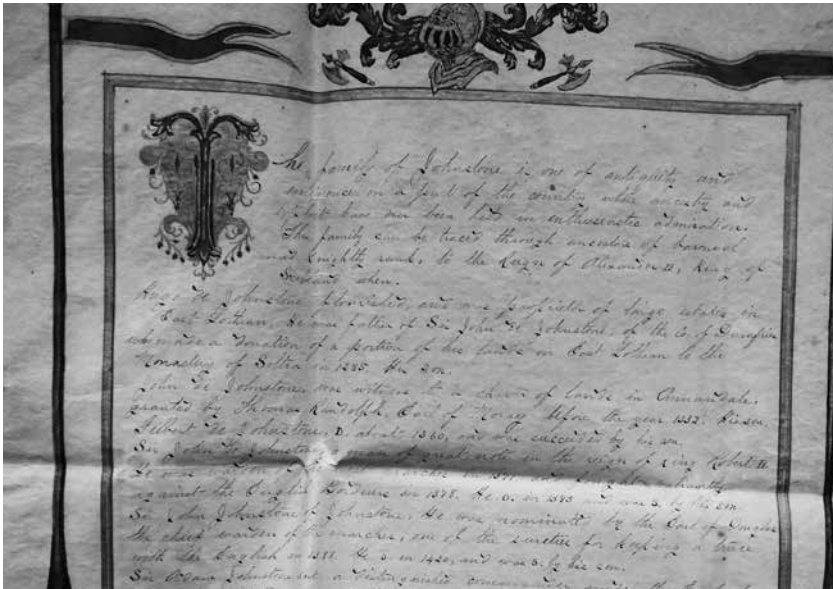 The family of Johnstone is one of antiquity and
eminence in a part of the country where ancestry and
have ever been held in enthusiastic admiration.
The family can be traced through ancestors of baronial
and knightly rank, to the Reign of Alexander II, King of
Scotland when.
Hugo de Johnstone flourished, and was proprietor of large estates in
East Lothian, He was father of Sir John de Johnstone, of the Co. of Dumfries
who made a donation of a portion of his lands in East Lothian to the
Monastery of Soltra in 1285. His son.
John de Johnstone, was witness to a charter of lands in Annandale,
granted by Thomas Randolph, Earl of Moray before the year 1332. His son.
Gilbert de Johnstone, D. about 1360, and was succeeded by his son
Sir John de Johnstone, a man of great note in the reign of King Robert II
He was warden of the and fought
against the English Borderers in 1378. He D. in 1383 and was S. by his son
Sir John Johnstone of Johnstone. He was nominated by the Earl of Douglas
the chief warden of the marches, one of the sureties for keeping a truce
with the English in 1388. He D. in 1420, and was S. by his son.
Sir Adam Johnstone a distinguished commander under the